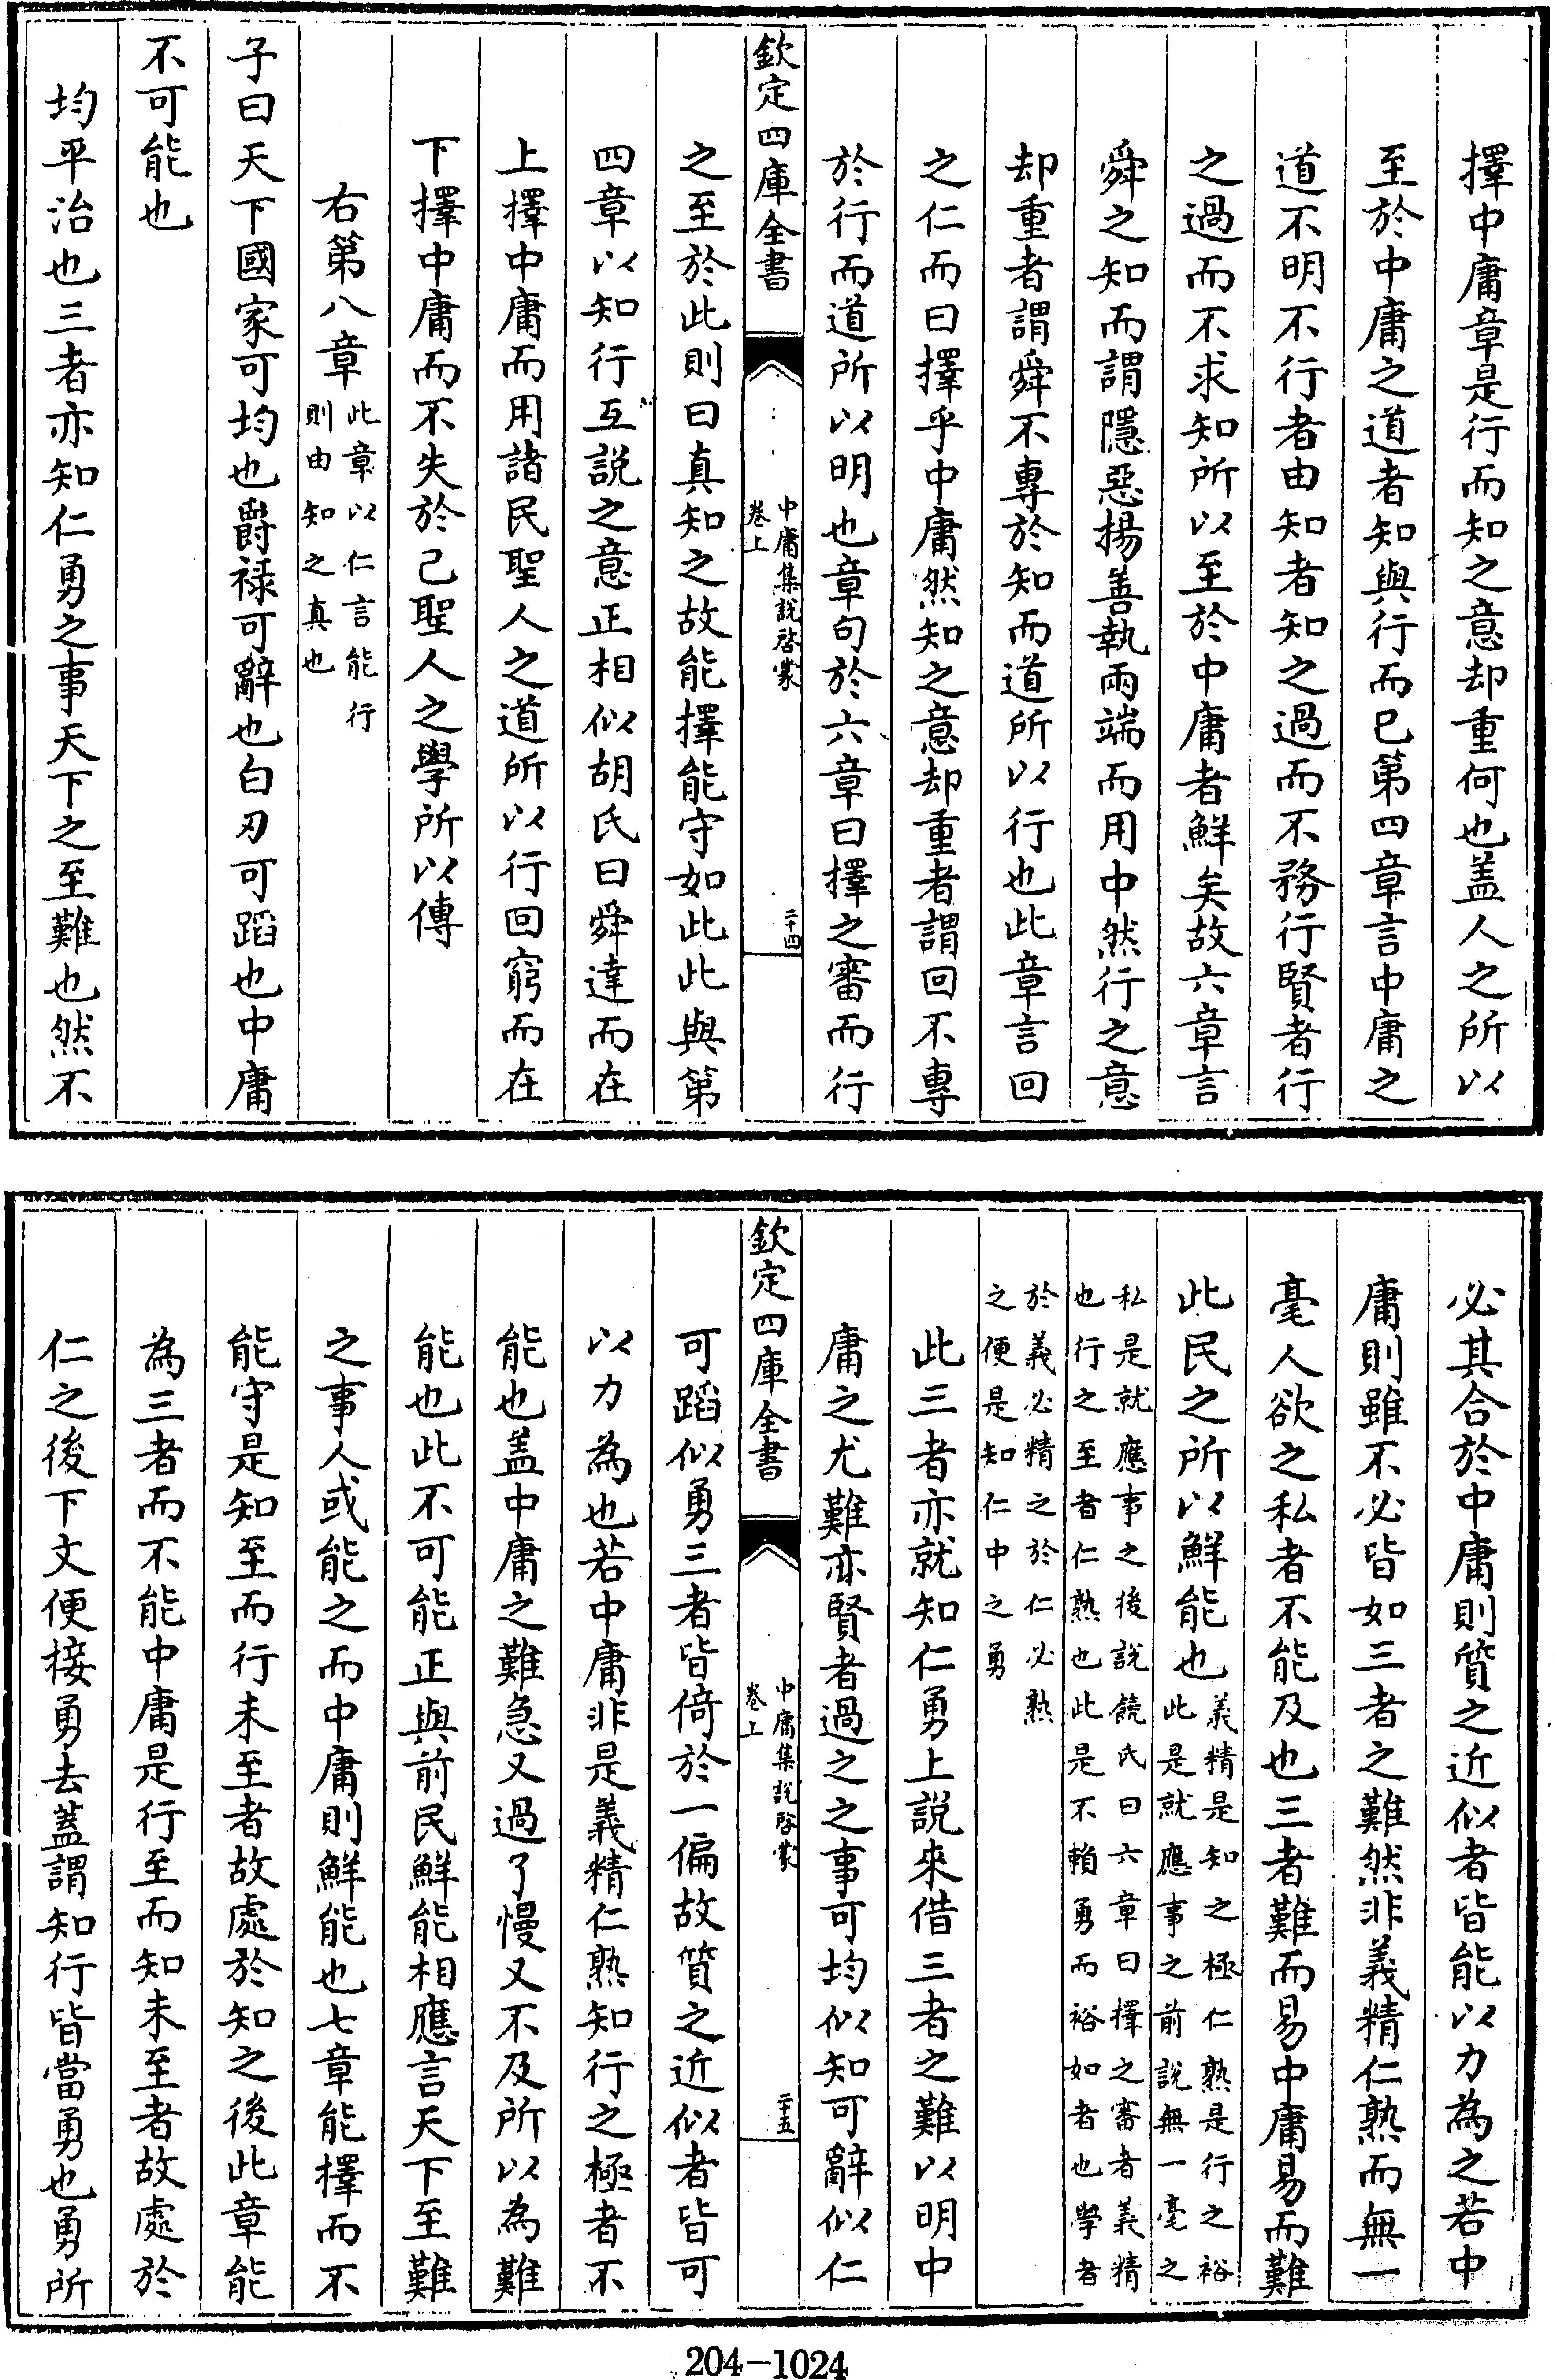 擇中庸章是行而知之意却重何也盖人之所以
至於中庸之道者知與行而已第四章言中庸之
道不明不行者由知者知之過而不務行賢者行
之過而不求知所以至於中庸者鮮矣故六章言
舜之知而謂隱惡揚善執兩端而用中然行之意
却重者謂舜不專於知而道所以行也此章言回
之仁而曰擇乎中庸然知之意却重者謂回不專
於行而道所以明也章句於六章曰擇之審而行
欽定四庫全書
中庸集說啓蒙
卷上
二十四
之至於此則曰真知之故能擇能守如此此與第
四章以知行互說之意正相似胡氏曰舜達而在
上擇中庸而用諸民聖人之道所以行回窮而在
下擇中庸而不失於己聖人之學所以傳
右第八章
此章以仁言能行
則由知之真也
子曰天下國家可均也爵禄可辭也白刃可蹈也中庸
不可能也
均平治也三者亦知仁勇之事天下之至難也然不
必其合於中庸則質之近似者皆能以力為之若中
庸則雖不必皆如三者之難然非義精仁熟而無一
毫人欲之私者不能及也三者難而易中庸易而難
此民之所以鮮能也
義精是知之極仁熟是行之裕
此是就應事之前說無一毫之
私是就應事之後說饒氏曰六章曰擇之審者義精
也行之至者仁熟也此是不賴勇而裕如者也學者
於義必精之於仁必熟
之便是知仁中之勇
此三者亦就知仁勇上說來借三者之難以明中
庸之尤難亦賢者過之之事可均似知可辭似仁
欽定四庫全書
中庸集說啓蒙
卷上
二十五
可蹈似勇三者皆倚於一偏故質之近似者皆可
以力為也若中庸非是義精仁熟知行之極者不
能也盖中庸之難急又過了慢又不及所以為難
能也此不可能正與前民鮮能相應言天下至難
之事人或能之而中庸則鮮能也七章能擇而不
能守是知至而行未至者故處於知之後此章能
為三者而不能中庸是行至而知未至者故處於
仁之後下文便接勇去蓋謂知行皆當勇也勇所
204-1024